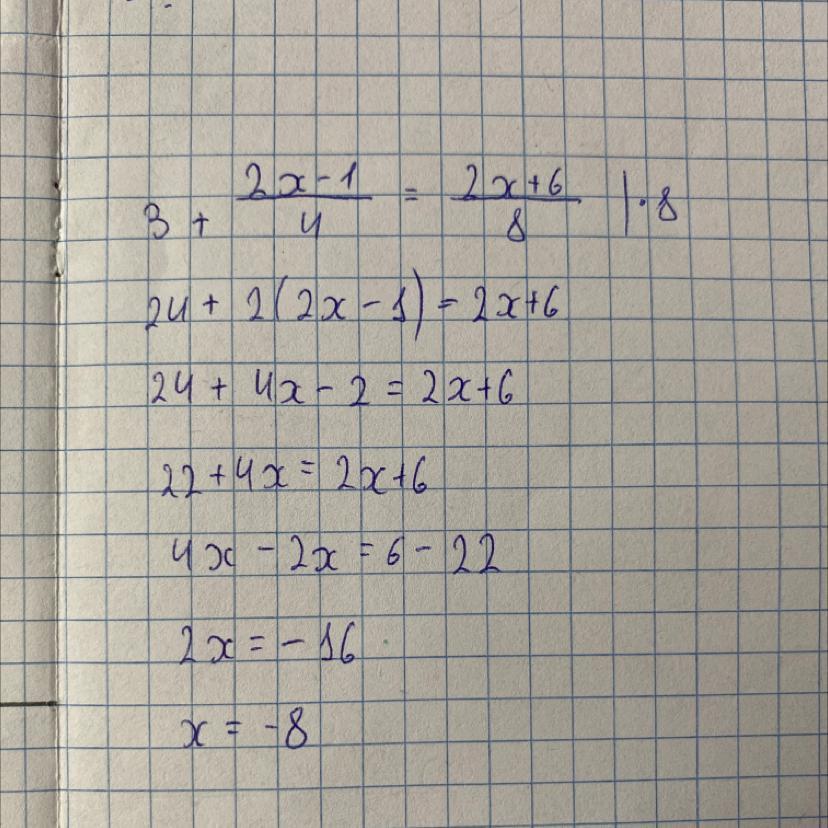 3 + (2x-1)/4 = (2x+6)/8 |·8
24 + 2(2x - 1) = 2x+6
24 + 4x - 2 = 2x+6
22+4x = 2x+6
4x - 2x = 6 - 22
2x = - 16
x = -8